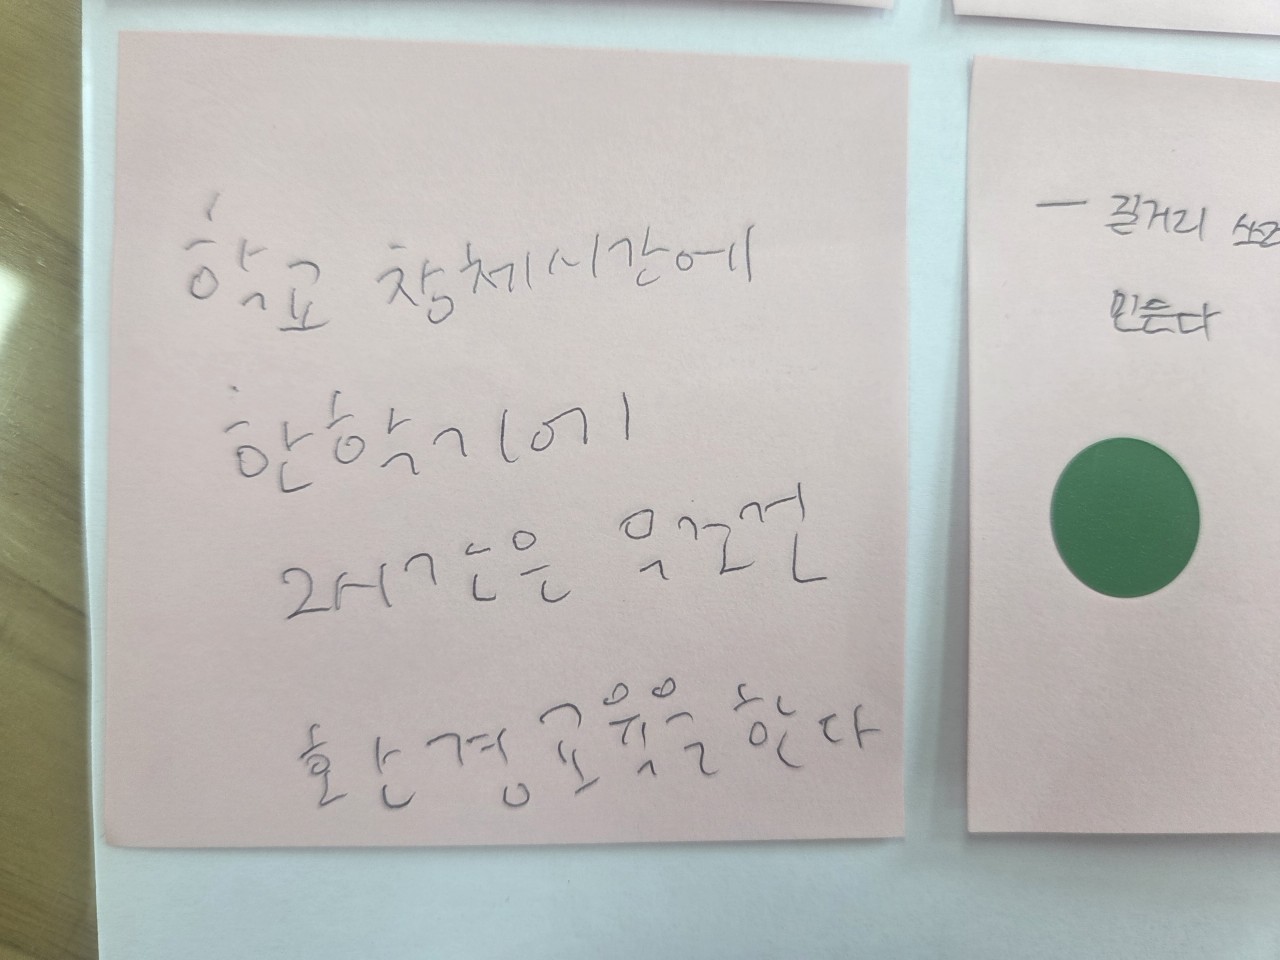 학교 창체시간에
한학기에
2시간은 의무적
환경교육을 한다
- 길거리
만든다